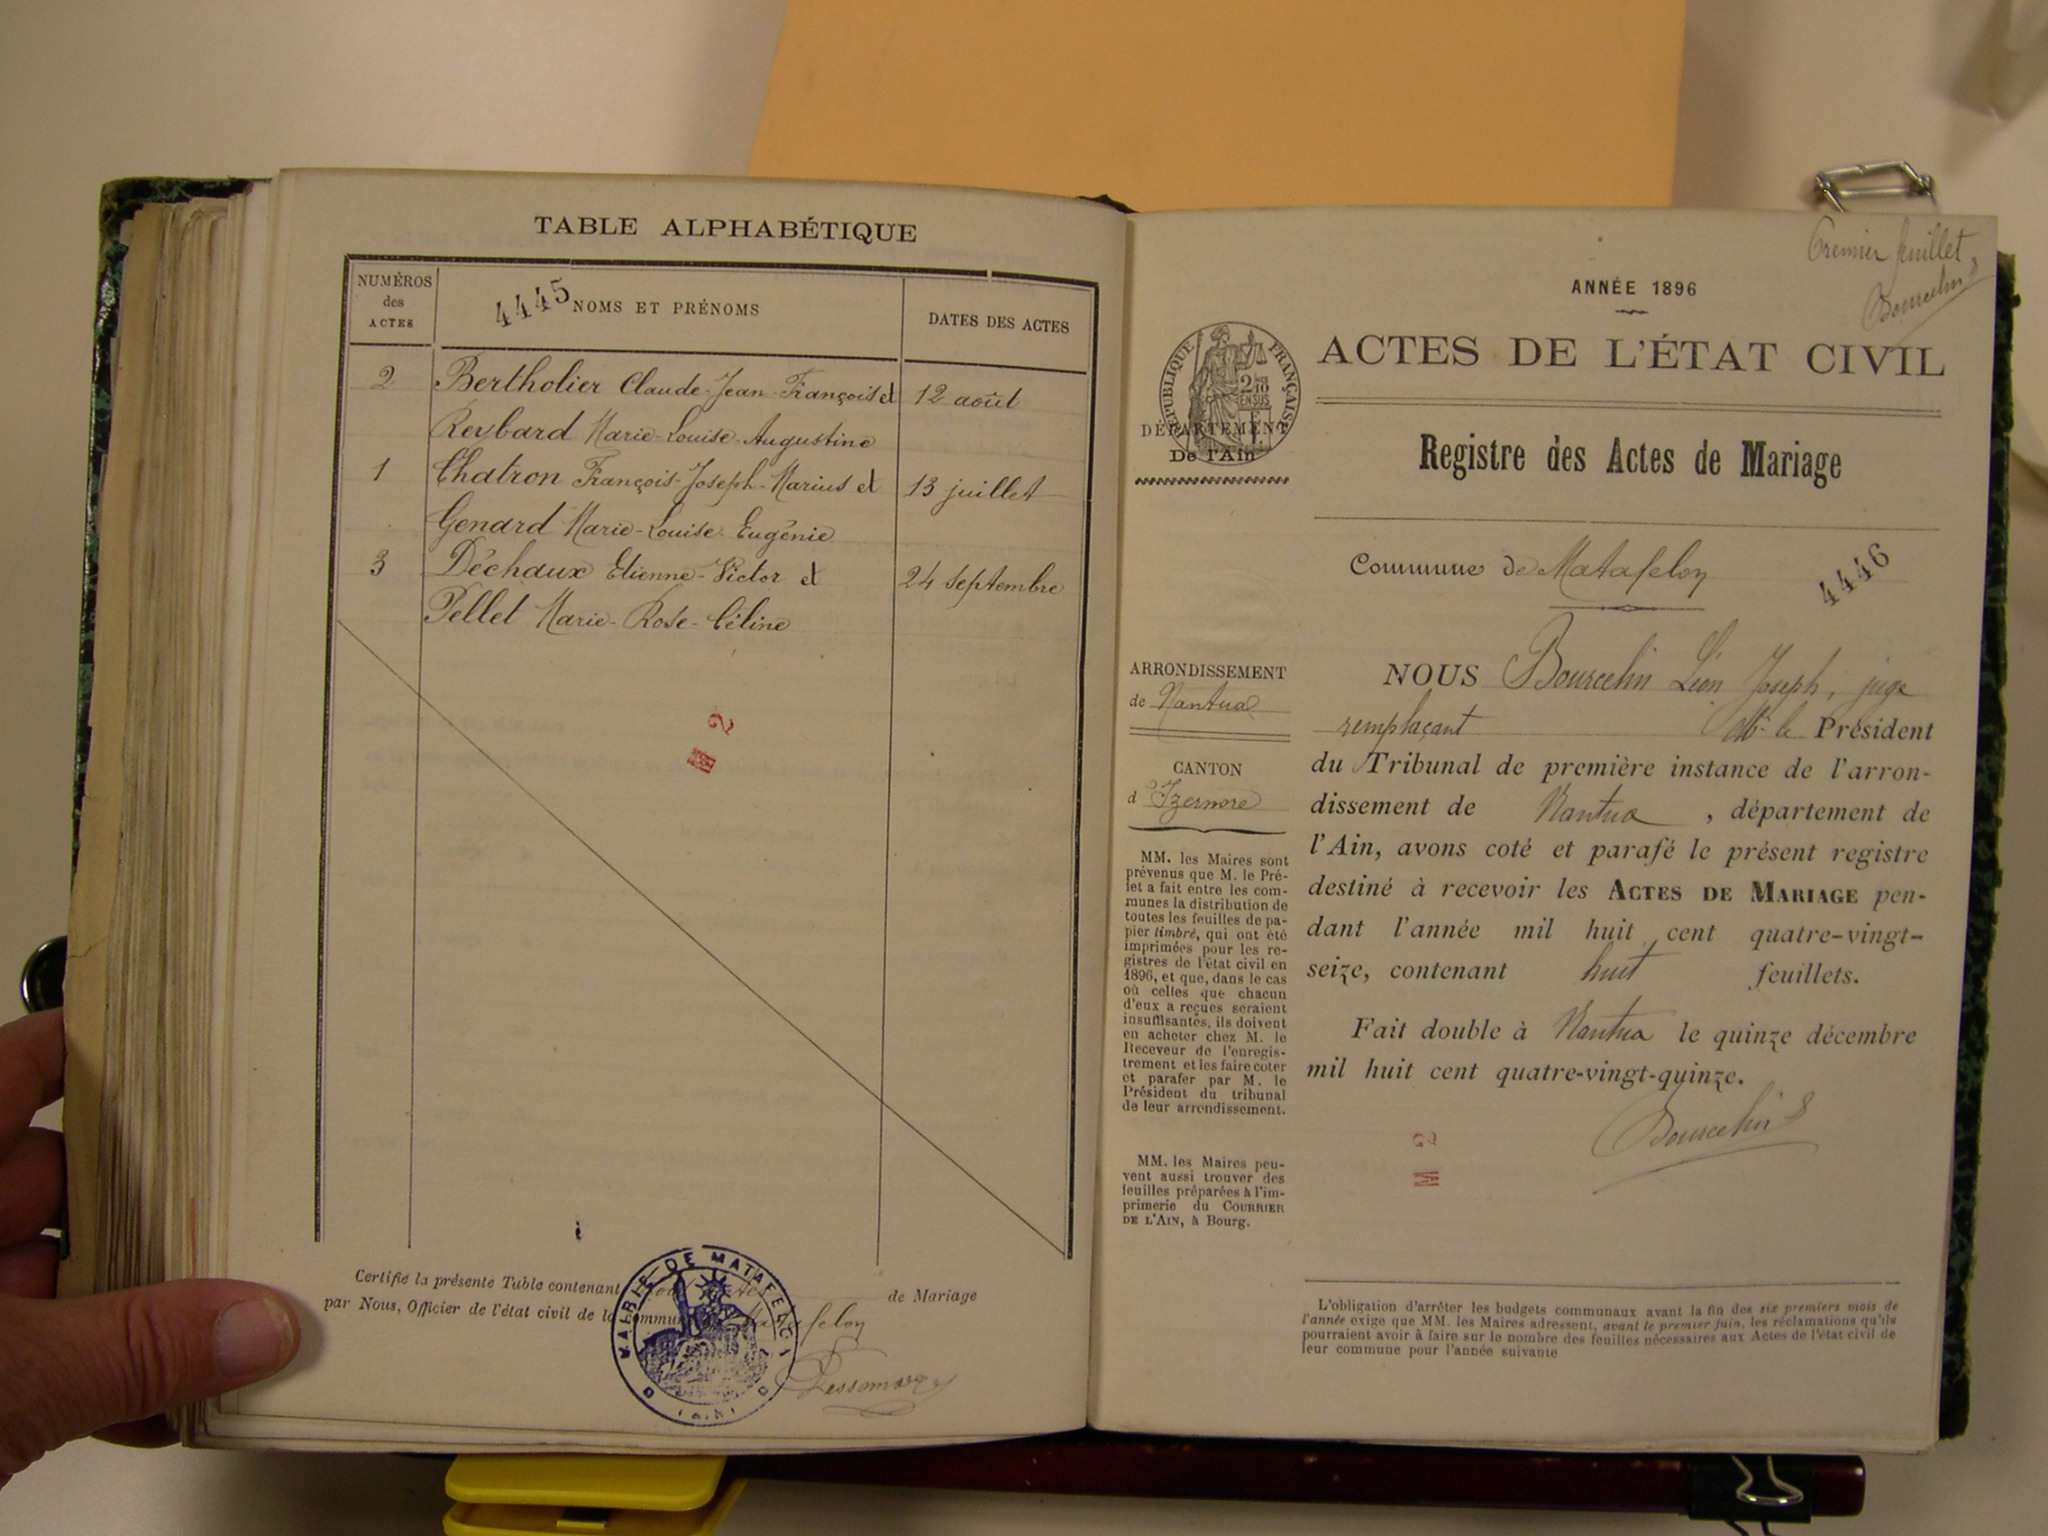 TABLE ALPHABÉTIQUE
NUMÉROS
des
ACTES
4445
NOMS ET PRÉNOMS
DATES DES ACTES
2 Bertholier Claude-Jean-François et 12 août
Reybard Marie-Louise-Augustine
1 Chatron François-Joseph-Marius et 13 juillet
Genard Marie-Louise-Eugénie
3 Déchaux Etienne-Victor et 24 septembre
Pellet Marie-Rose-Céline
2
Certifié la présente Table contenant de Mariage
par Nous, Officier de l'état civil de la commune
MAIRIE DE MATAFELON
(AIN)
Premier feuillet
Bourcelin
ANNÉE 1896
ACTES DE L'ÉTAT CIVIL
RÉPUBLIQUE FRANÇAISE
2/10
EN SUS
DÉPARTEMENT
De l'Ain
Registre des Actes de Mariage
Commune de Matafelon
4446
ARRONDISSEMENT
de Nantua
CANTON
d'Izernore
MM. les Maires sont
prévenus que M. le Pré-
fet a fait entre les com-
munes la distribution de
toutes les feuilles de pa-
pier timbré, qui ont été
imprimées pour les re-
gistres de l'état civil en
1896, et que, dans le cas
où celles que chacun
d'eux a reçues seraient
insuffisantes, ils doivent
en acheter chez M. le
Receveur de l'enregis-
trement et les faire coter
et parafer par M. le
Président du tribunal
de leur arrondissement.
MM. les Maires peu-
vent aussi trouver des
feuilles préparées à l'im-
primerie du COURRIER
DE L'AIN, à Bourg.
NOUS Bourcelin Léon Joseph, juge
remplaçant Mr. le Président
du Tribunal de première instance de l'arron-
dissement de Nantua, département de
l'Ain, avons coté et parafé le présent registre
destiné à recevoir les ACTES DE MARIAGE pen-
dant l'année mil huit cent quatre-vingt-
seize, contenant huit feuillets.
Fait double à Nantua le quinze décembre
mil huit cent quatre-vingt-quinze.
Bourcelin
2
M
L'obligation d'arrêter les budgets communaux avant la fin des six premiers mois de
l'année exige que MM. les Maires adressent, avant le premier juin, les réclamations qu'ils
pourraient avoir à faire sur le nombre des feuilles nécessaires aux Actes de l'état civil de
leur commune pour l'année suivante